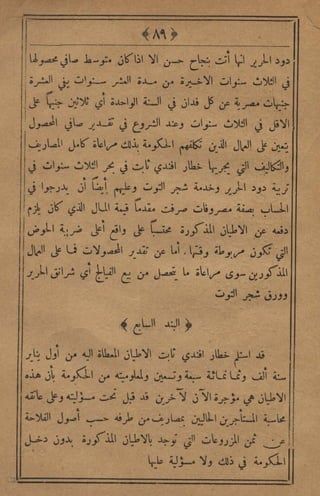 ﴿ ٨٩ ﴾
دود الحرير انها أتت بنجاح حسن الا اذا كان متوسط صافي محصولها
في الثلاث سنوات الاخيرة من مدة العشر سنوات يفي العشرة
جنيهات مصرية عن كل فدان في السنة الواحدة أي ثلاثين جنيهاً على
الاقل في الثلاث سنوات وعند الشروع في تقدير صافي المحصول
يتعين على العمال الذين تكلفهم الحكومة بذلك مراعاة كامل المصاريف
والتكاليف التي يجريها خطار افندي ثابت في بحر الثلاث سنوات في
تربية دود الحرير وخدمة شجر التوت وعليهم أيضاً أن يدرجوا في
الحساب بصفة مصروفات صرفت مقدماً قيمة المال الذي كان يلزم
دفعه عن الاطيان المذكورة محتسباً على واقع أعلى ضريبة الحوض
التي تكون مربوطة وقتها. أما عن تقدير المحصولات فما على العمال
المذكورين سوى مراعاة ما يتحصل من بيع الفيالج أي شرانق الحرير
وورق شجر التوت
﴿ البند السابع ﴾
قد استلم خطار افندي ثابت الاطيان المعطاة اليه من أول يناير
سنة ألف وثمانمائة سبعة وتسعين ولمعلوميته من الحكومة بأن هذه
الاطيان هي مؤجرة الآن لآخرين قد قبل تحت مسؤليته وعلى عاتقه
محاسبة المستأجرين الحاليين بمصاريف من طرفه حسب أصول الفلاحة
عن ثمن المزروعات التي توجد بالاطيان المذكورة بدون دخل
الحكومة في ذلك ولا مسؤلية عليها